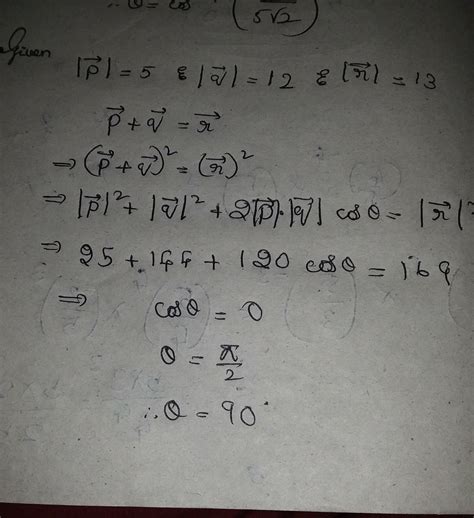 ∴ θ = cos (5√2)
Given
|p⃗| = 5 & |q⃗| = 12 & |r⃗| = 13
p⃗ + q⃗ = r⃗
⇒ (p⃗ + q⃗)² = (r⃗)²
⇒ |p⃗|² + |q⃗|² + 2|p⃗|·|q⃗| cosθ = |r⃗|²
⇒ 25 + 144 + 120 cosθ = 169
⇒ cosθ = 0
θ = π/2
∴ θ = 90°